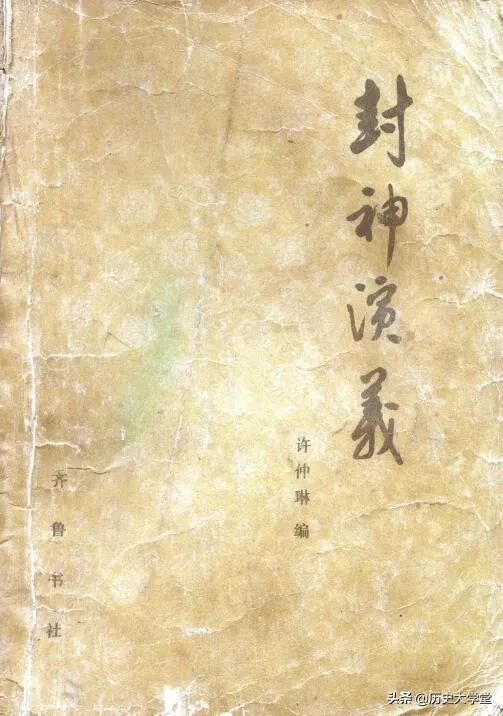 封神演義
许仲琳 编
齐鲁书社
头条 @历史大学堂